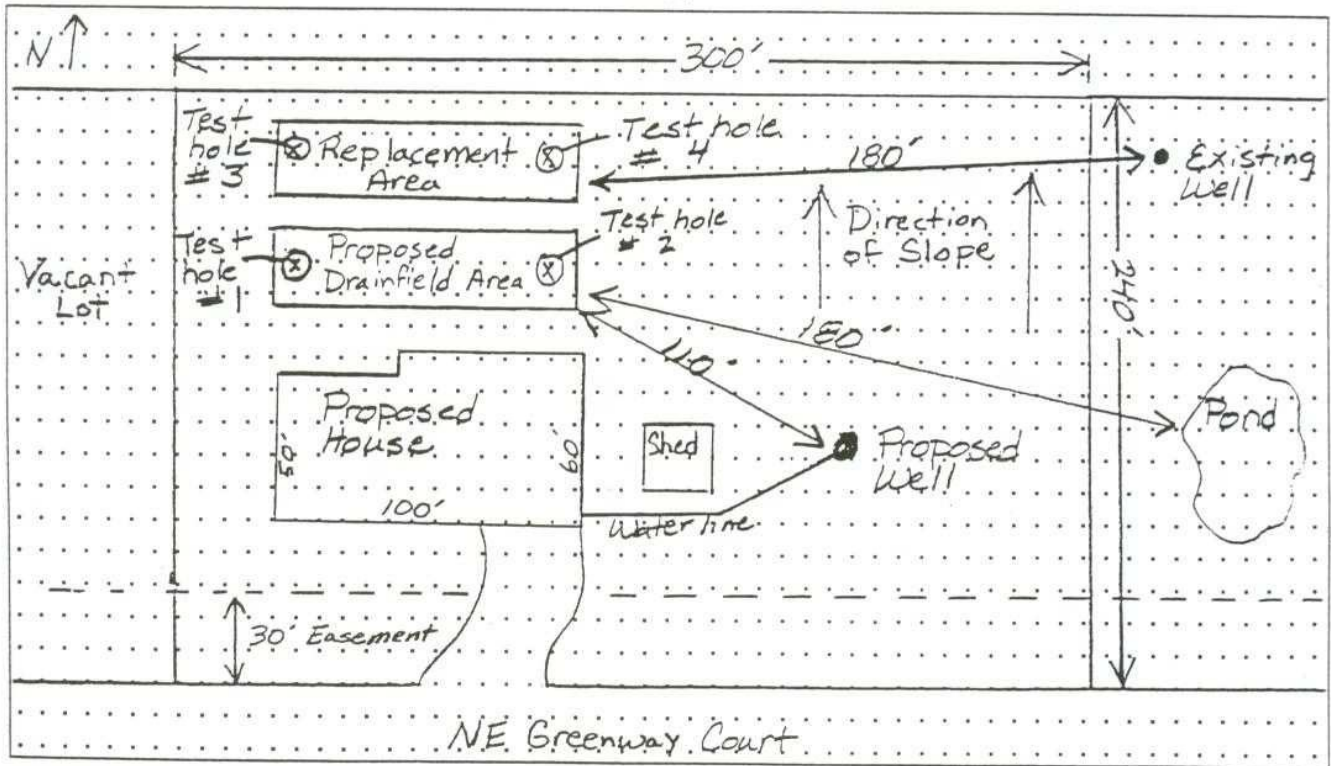 N
300'
Test
hole
# 3
Replacement
Area
Test hole
# 4
180'
Existing
Well
Test
hole
# 1
Proposed
Drainfield Area
Test hole
# 2
Direction
of Slope
Vacant
Lot
240'
180'
110'
Proposed
House
50'
60'
100'
Shed
Proposed
Well
Pond
Water line
30' Easement
NE Greenway Court